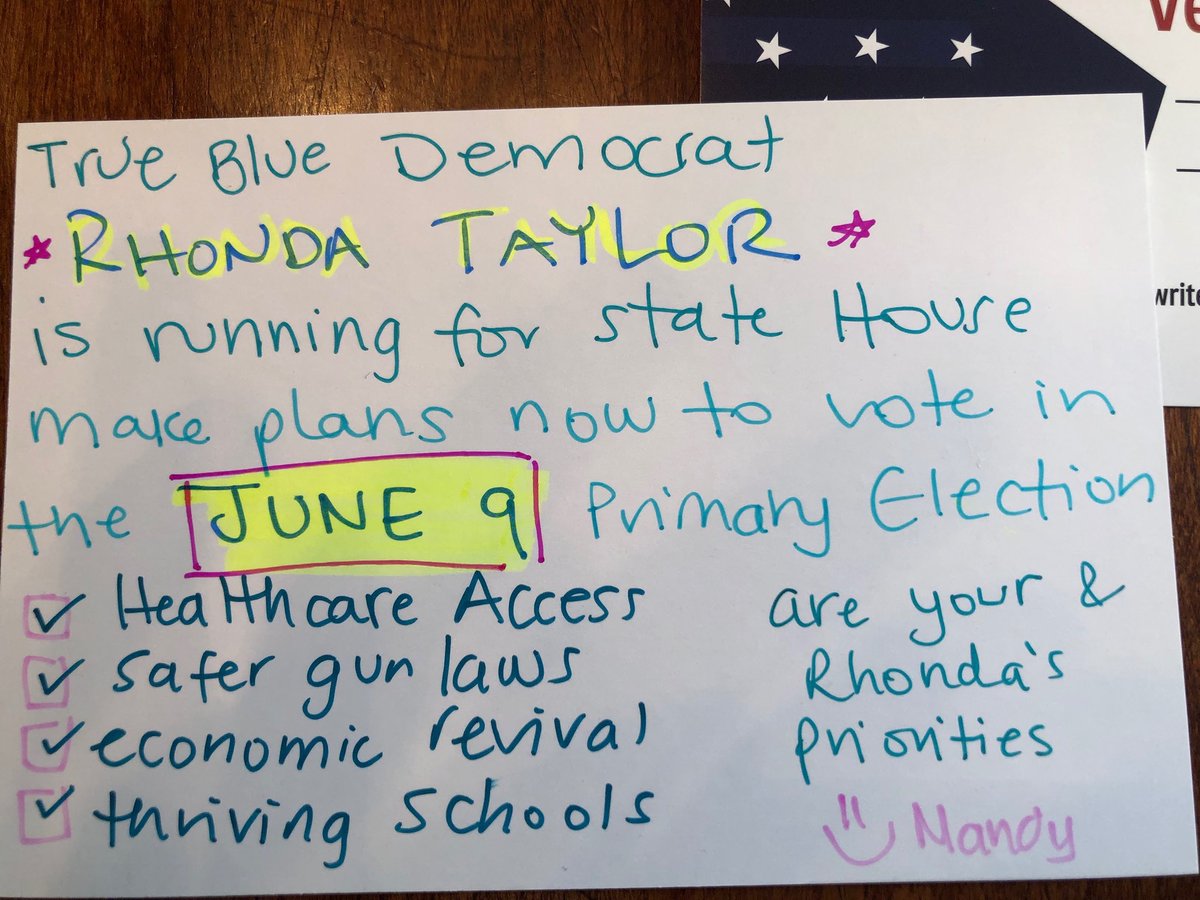 True Blue Democrat
RHONDA TAYLOR
is running for state House
make plans now to vote in
the JUNE 9 Primary Election
Healthcare Access
safer gun laws
economic revival
thriving schools
are your &
Rhonda's
priorities
Mandy
Ve
write